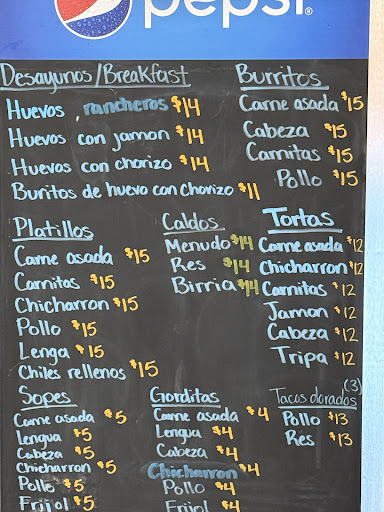 pepsi®
Desayunos/Breakfast
Huevos rancheros $14
Huevos con jamon $14
Huevos con chorizo $14
Buritos de huevo con Chorizo $11
Burritos
Carne asada $15
Cabeza $15
Carnitas $15
Pollo $15
Platillos
Carne asada $15
Carnitas $15
Chicharron $15
Pollo $15
Lenga $15
Chiles rellenos $15
Caldos
Menudo $14
Res $14
Birria $14
Tortas
Carne asada $12
Chicharron $12
Carnitas $12
Jamon $12
Cabeza $12
Tripa $12
Sopes
Carne asada $5
Lengua $5
Cabeza $5
Chicharron $5
Pollo $5
Frijol $5
Gorditas
Carne asada $4
Lengua $4
Cabeza $4
Chicharron $4
Pollo $4
Frijol $4
Tacos dorados (3)
Pollo $13
Res $13